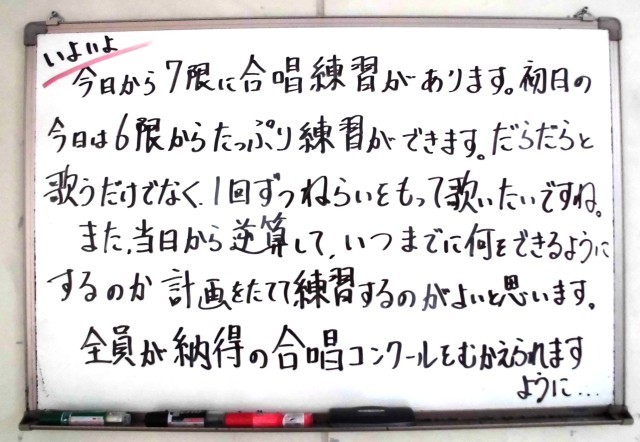 いよいよ
今日から7限に合唱練習があります。初日の
今日は6限からたっぷり練習ができます。だらだらと
歌うだけでなく、1回ずつねらいをもって歌いたいですね。
また、当日から逆算して、いつまでに何をできるように
するのか計画をたてて練習するのがよいと思います。
全員が納得の合唱コンクールをむかえられます
ように…